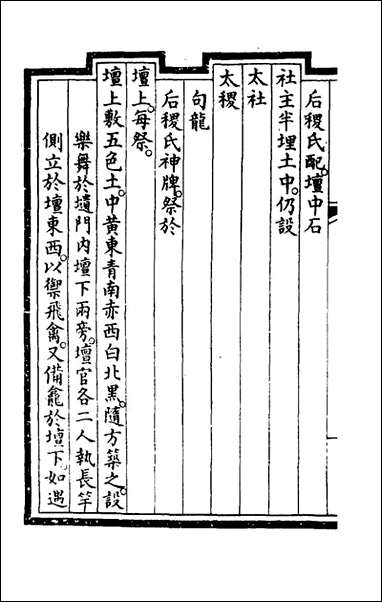 后稷氏配。壇中石
社主半埋土中。仍設
太社
太稷
句龍
后稷氏神牌。祭於
壇上每祭。
壇上敷五色土。中黃東青南赤西白北黑。隨方築之。設
樂舞於壝門內壇下兩旁。壇官各二人執長竿
側立於壇東西。以禦飛禽。又備龕於壇下。如遇